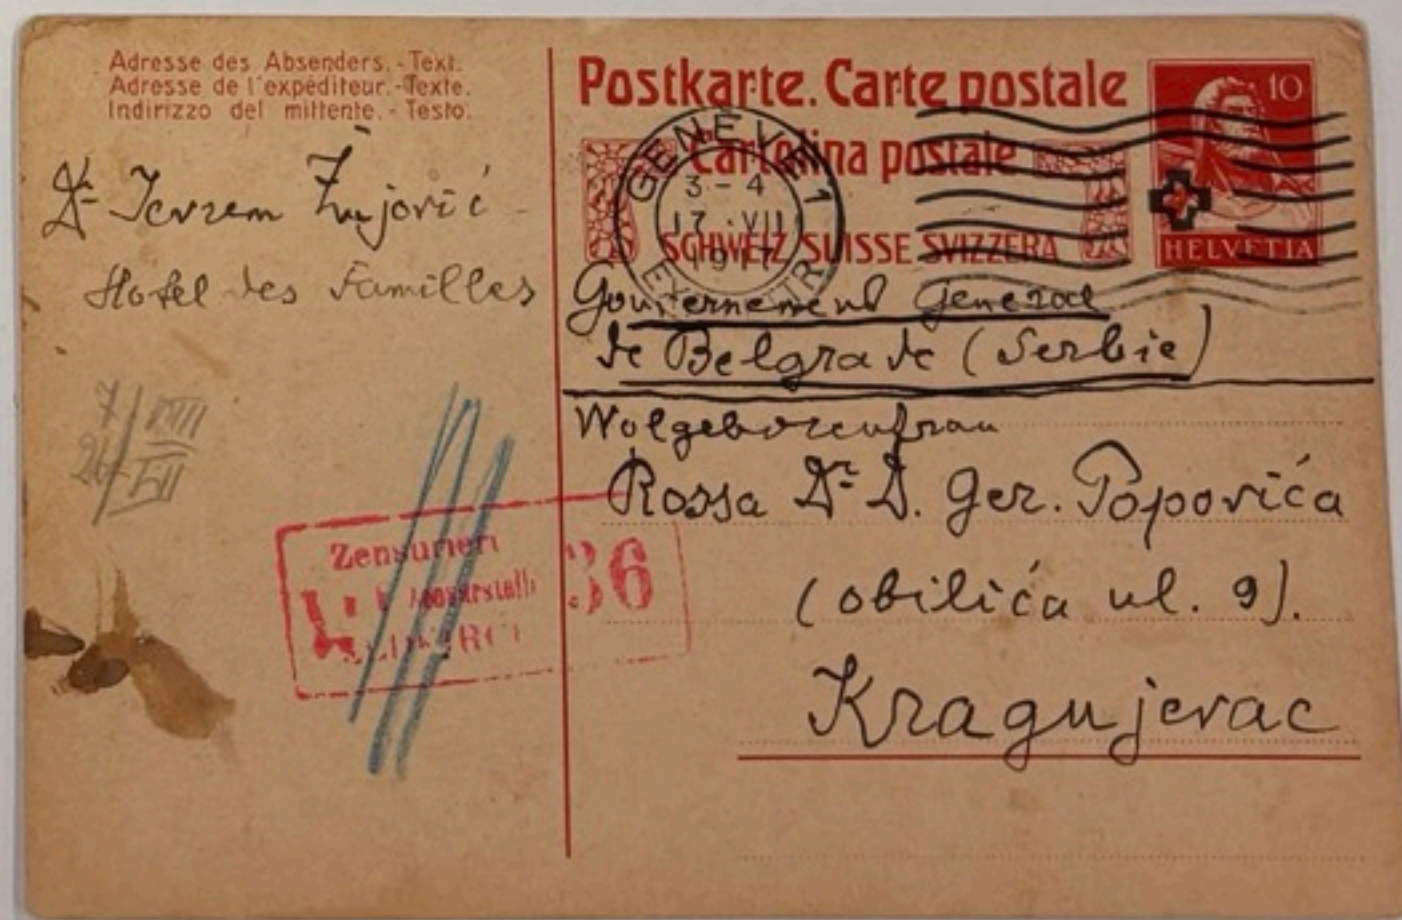 Adresse des Absenders. - Text.
Adresse de l'expéditeur. - Texte.
Indirizzo del mittente. - Testo.
Dr Jevrem Žujović
Hotel des Familles
7/VIII
26/VII
Zensuriert
36
Postkarte. Carte postale
Cartolina postale
SCHWEIZ SUISSE SVIZZERA
10
HELVETIA
GENÈVE 1
3-4
17·VII
1917
Gouvernement General
de Belgrade (Serbie)
Wolgeborenfrau
Rossa Dr D. Ger. Popovića
(obilića ul. 9).
Kragujevac